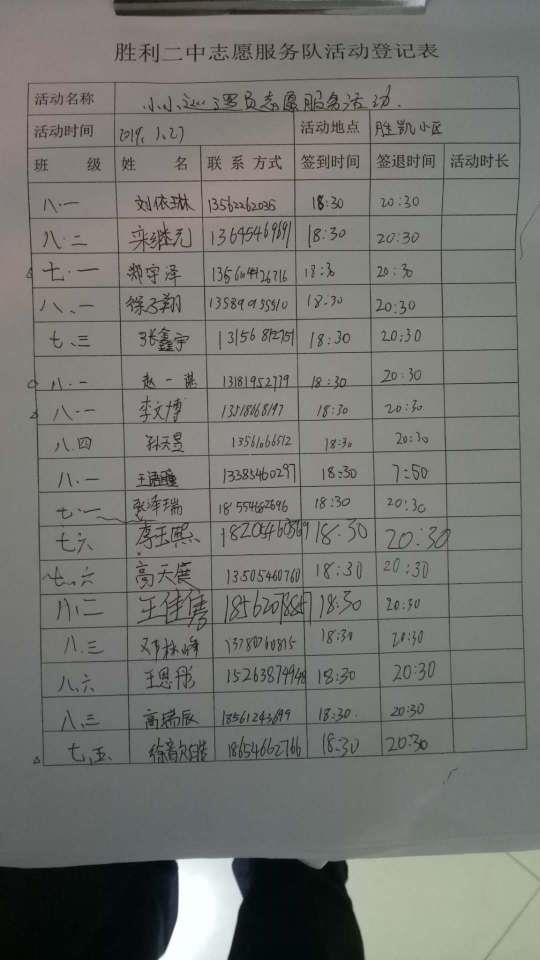 胜利二中志愿服务队活动登记表
活动名称 小小巡逻员志愿服务活动.
活动时间 2019.1.27 活动地点 胜凯小区
班 级 姓 名 联系方式 签到时间 签退时间 活动时长
八.一 刘依琳 13562262035 18:30 20:30
八.二 栾继元 13645469691 18:30 20:30
七.一 郑宇泽 18:30 20:30
八.一 徐子翔 13589935510 18:30 20:30
七.三 张鑫宇 13156812751 18:30 20:30
八.一 赵一诺 13181952779 18:30 20:30
八.一 李文博 18:30 20:30
八.四 孙天昱 13561066512 18:30 20:30
八.一 13385460297 18:30 7:50
七.一 张泽瑞 18554662696 18:30 20:30
七六 李玉熙 18:30 20:30
七.六 高天宸 13505460760 18:30 20:30
八.二 王佳隽 18:30 20:30
八.三 邓秋峰 18:30 20:30
八.六 王思彤 18:30 20:30
八.三 高瑞辰 18561243699 18:30. 20:30
七.五 18654662766 18:30 20:30